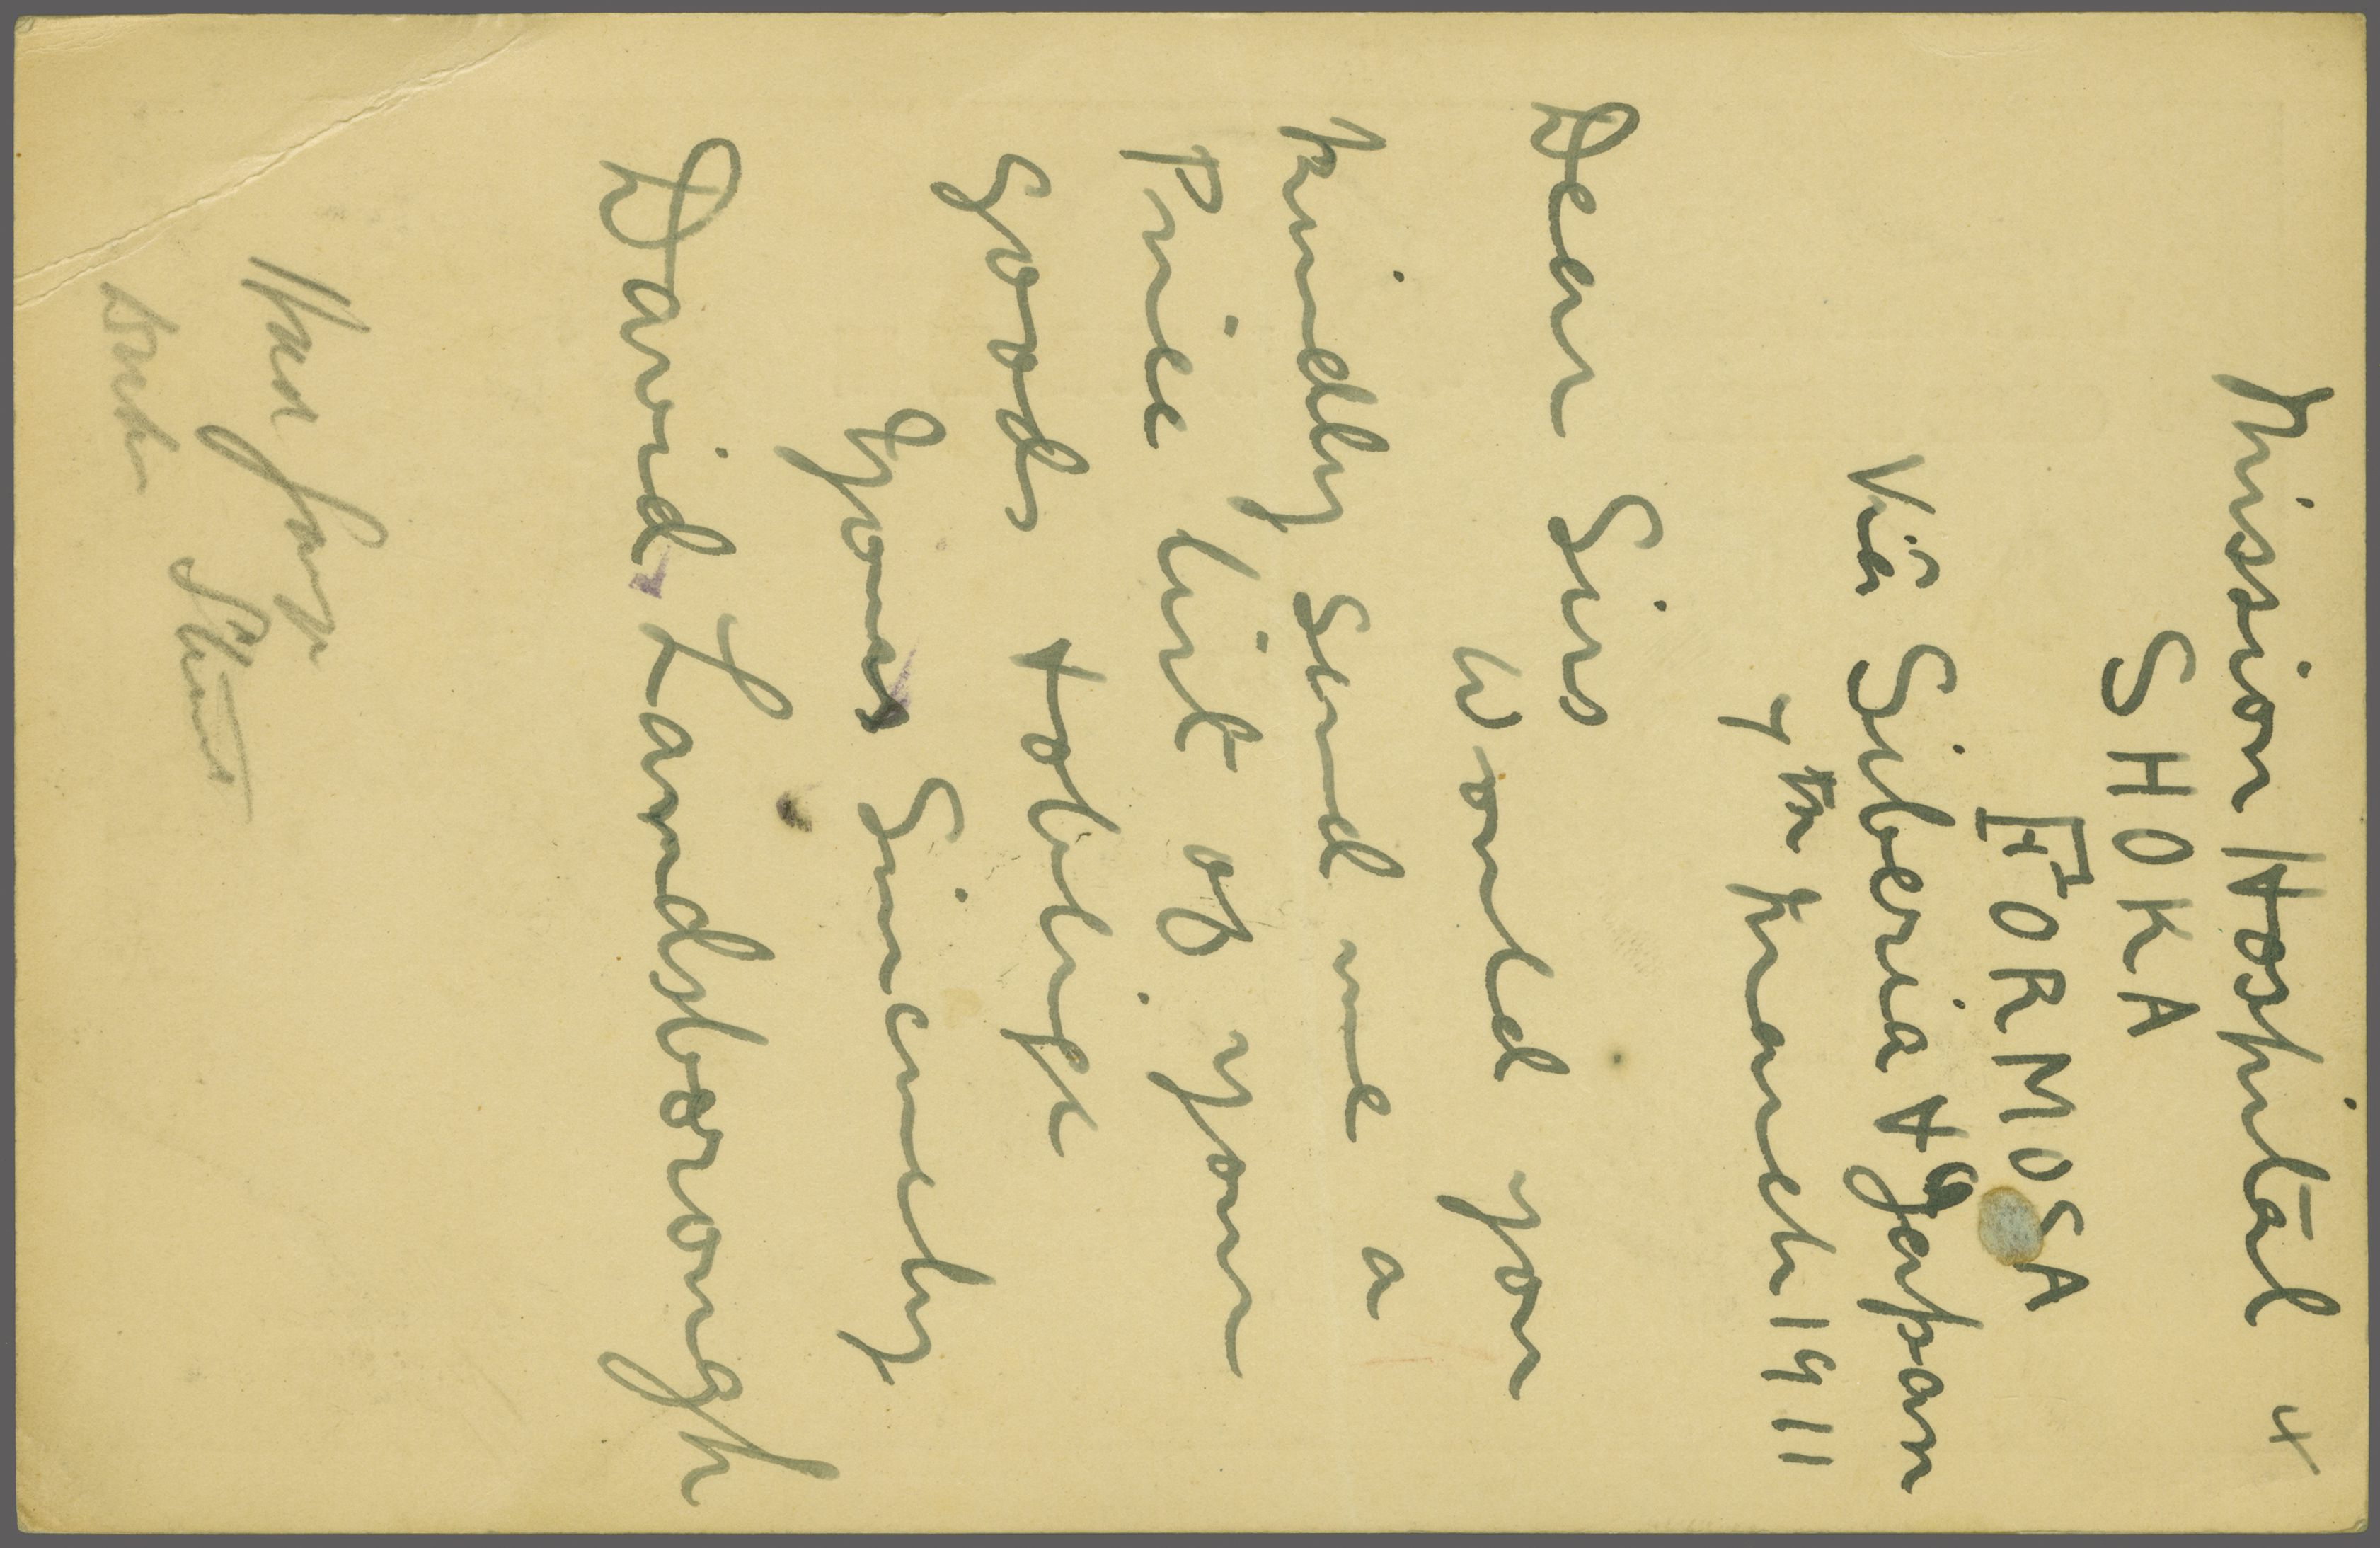 Mission Hospital
SHOKA
FORMOSA
Via Siberia + Japan
7th March 1911
Dear Sirs
Would you
kindly send me a
Price list of your
goods + oblige
Yours Sincerely
David Landsborough